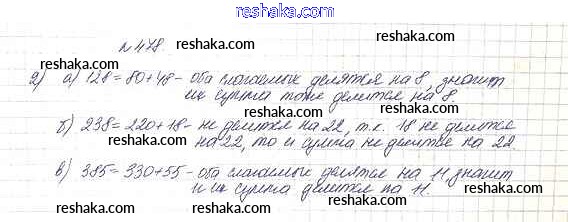 reshaka.com
№ 478
reshaka.com
reshaka.com
2) а) 128=80+48- оба слагаемых делятся на 8, значит
их сумма тоже делится на 8.
reshaka.com
reshaka.com
б) 238=220+18- не делится на 22, т.к. 18 не делится
на 22, то и сумма не делится на 22
reshaka.com
reshaka.com
reshaka.com
в) 385=330+55- оба слагаемых делятся на 11, значит
и их сумма делится на 11.
reshaka.com
reshaka.com
reshaka.com